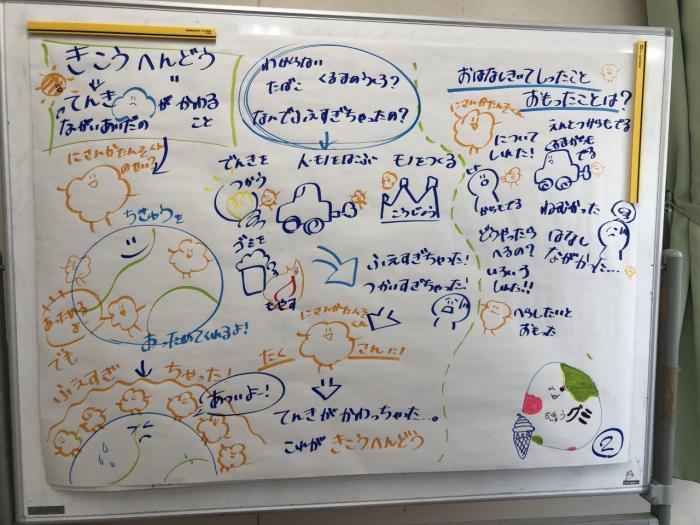 きこうへんどう
って てんき が かわる
ながいあいだの こと
にさんかたんそくん
のせい?
ちきゅうを
あっためる
あっためてくれるよ!
でも
ふえすぎちゃった!
あついよー!
わからない
たばこ くるまのうしろ?
なんでふえすぎちゃったの?
でんきを
つかう
人・モノをはこぶ
モノをつくる
こうじょう
ゴミを
もやす
ふえすぎちゃった!
つかいすぎちゃった!
にさんかたんそ
くん
たくさんだ!
てんきがかわっちゃった…。
これが きこうへんどう
おはなしきいてしったこと
おもったことは?
にさんかたんそくん
について
しれた!
えんとつからもでる
くるまからも
でる
ヒト
からもでる
ねむかった
はなし
ながかった…
どうやったら
へるの?
いろいろ
しれた!!
へらしたいと
おもった
ちきゅうグミ
2